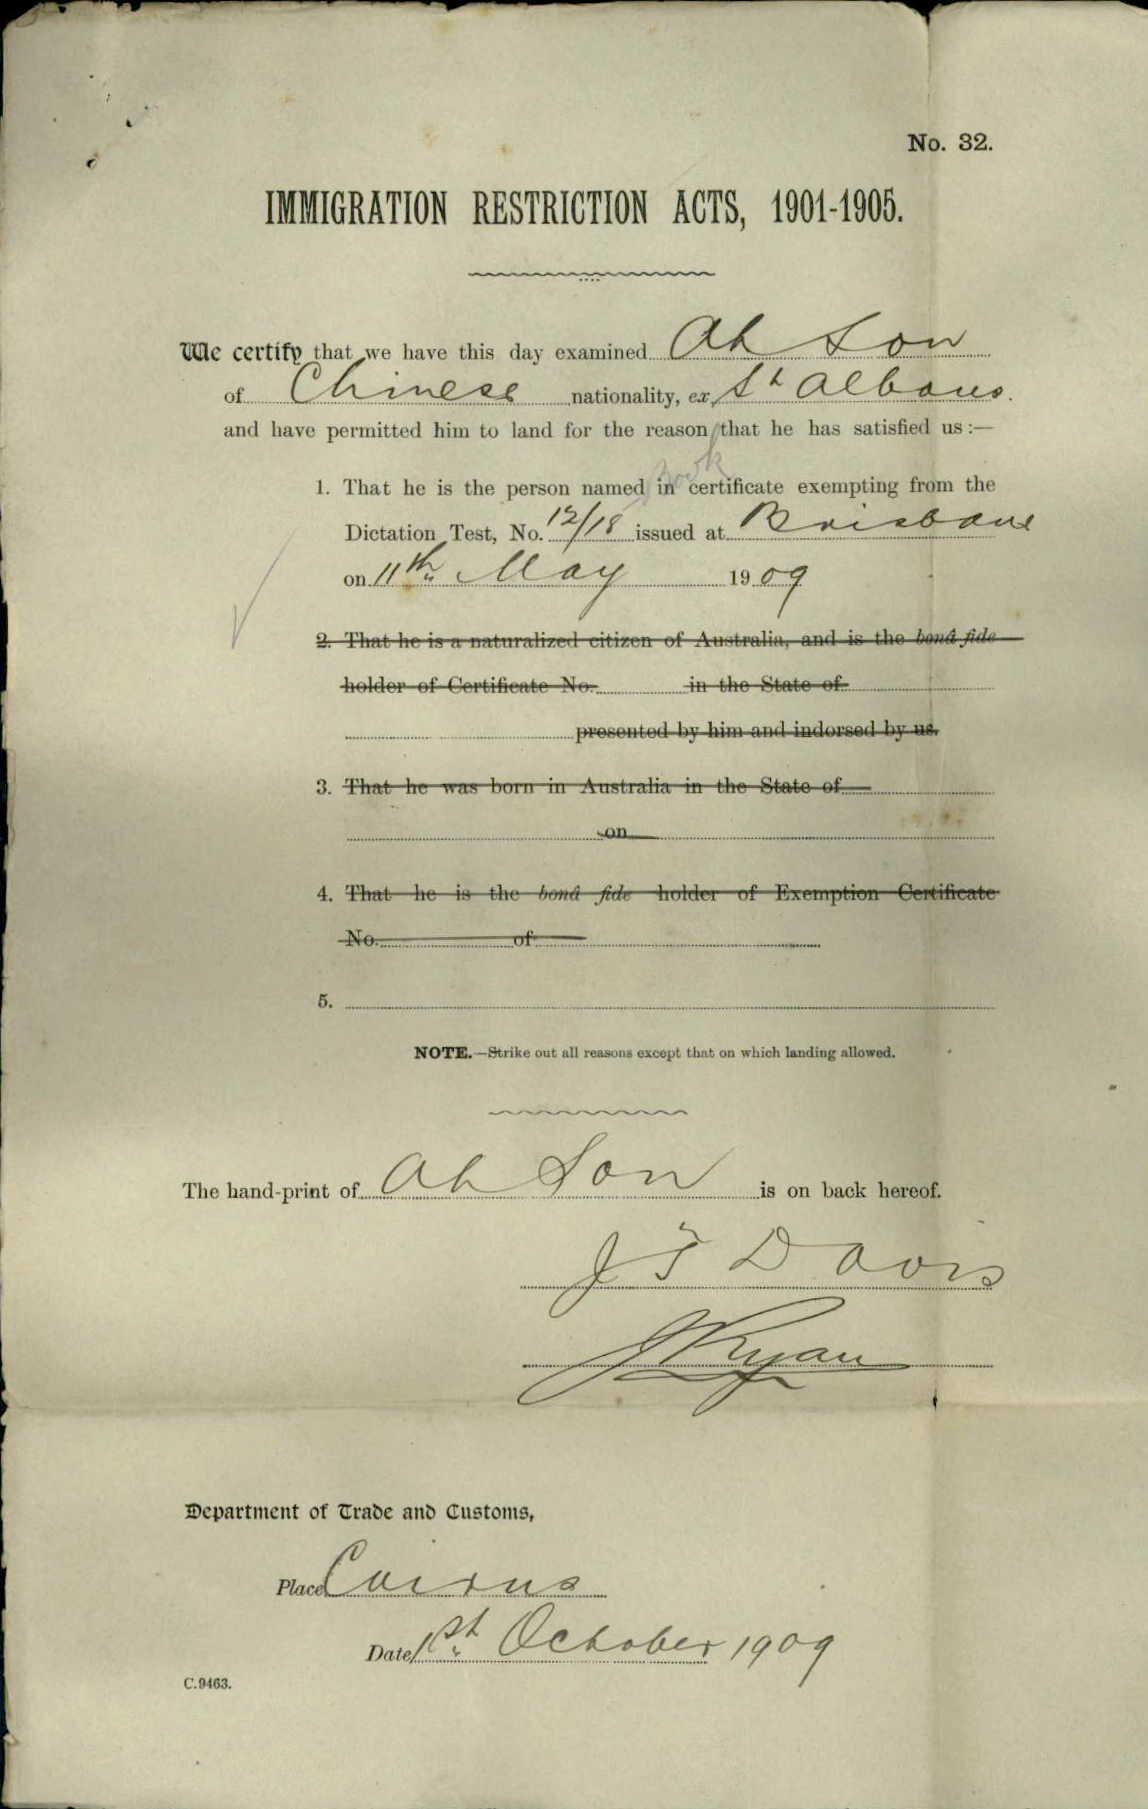 No. 32.
IMMIGRATION RESTRICTION ACTS, 1901-1905.
We certify that we have this day examined Ah Son
of Chinese nationality, ex St Albans.
and have permitted him to land for the reason that he has satisfied us:—
Book
1. That he is the person named in certificate exempting from the
Dictation Test, No. 12/18 issued at Brisbane
on 11th May 1909
2. That he is a naturalized citizen of Australia, and is the bonâ fide
holder of Certificate No. in the State of
presented by him and indorsed by us.
3. That he was born in Australia in the State of
on
4. That he is the bonâ fide holder of Exemption Certificate
No. of
5.
NOTE.—Strike out all reasons except that on which landing allowed.
The hand-print of Ah Son is on back hereof.
J T Davis
J Ryan
Department of Trade and Customs,
Place Cairns
Date 1st October 1909
C.9463.